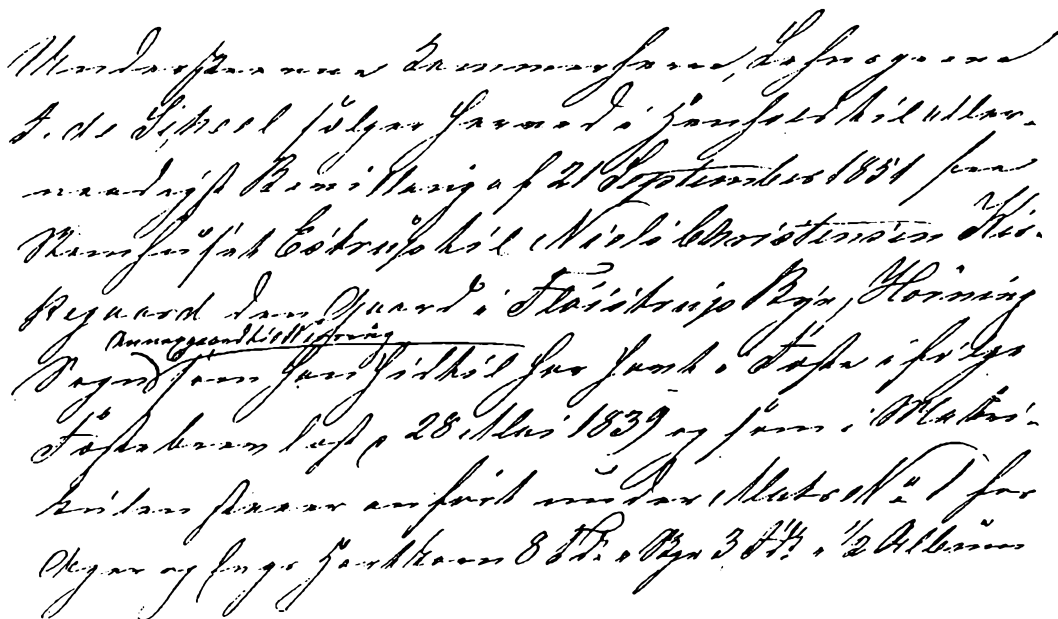 Underskrevne Kammerherre, Lehnsgreve
F. de Lichtenberg sælger herved i Henhold til aller-
naadigst Bevilling af 21 September 1851 fra
Stamhuset Estrup til Niels Christensen Kir-
kegaard den Gaard i Floistrup Bye, Hörning
Sogn som han hidtil har havt i Fæste ifölge
Fæstebrev læst 28 Mai 1839 og som i Matri-
kulen staaer anfört under Matr No 1 for
Ager og Engs Hartkorn 8 Td. " Skp 3 Fdk. " 1/2 Album